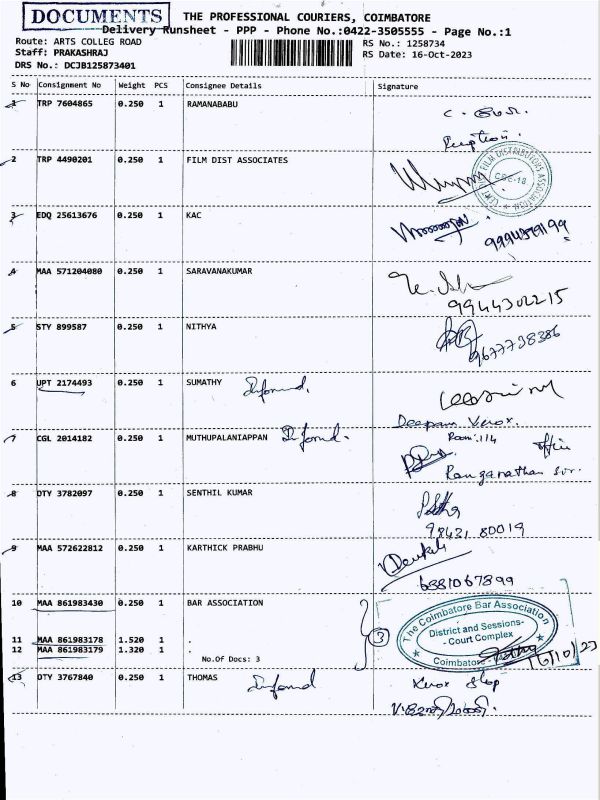 DOCUMENTS
THE PROFESSIONAL COURIERS, COIMBATORE
Delivery Runsheet - PPP - Phone No.:0422-3505555 - Page No.:1
Route: ARTS COLLEG ROAD
Staff: PRAKASHRAJ
DRS No.: DCJB125873401
RS No.: 1258734
RS Date: 16-Oct-2023
S No Consignment No Weight PCS Consignee Details Signature
1 TRP 7604865 0.250 1 RAMANABABU
2 TRP 4490201 0.250 1 FILM DIST ASSOCIATES
3 EDQ 25613676 0.250 1 KAC
4 MAA 571204080 0.250 1 SARAVANAKUMAR
9944302215
5 STY 899587 0.250 1 NITHYA
9677738386
6 UPT 2174493 0.250 1 SUMATHY Informed.
Deepam Xerox.
7 CGL 2014182 0.250 1 MUTHUPALANIAPPAN Informd.
Room: 114
office
Ranganathan Sir.
8 DTY 3782097 0.250 1 SENTHIL KUMAR
98431 80019
9 MAA 572622812 0.250 1 KARTHICK PRABHU
6381067899
10 MAA 861983430 0.250 1 BAR ASSOCIATION
11 MAA 861983178 1.520 1 .
12 MAA 861983179 1.320 1 .
No.Of Docs: 3
3
The Coimbatore Bar Association
District and Sessions-
Court Complex
Coimbatore
16/10/23
13 DTY 3767840 0.250 1 THOMAS Informd
Xerox Shop